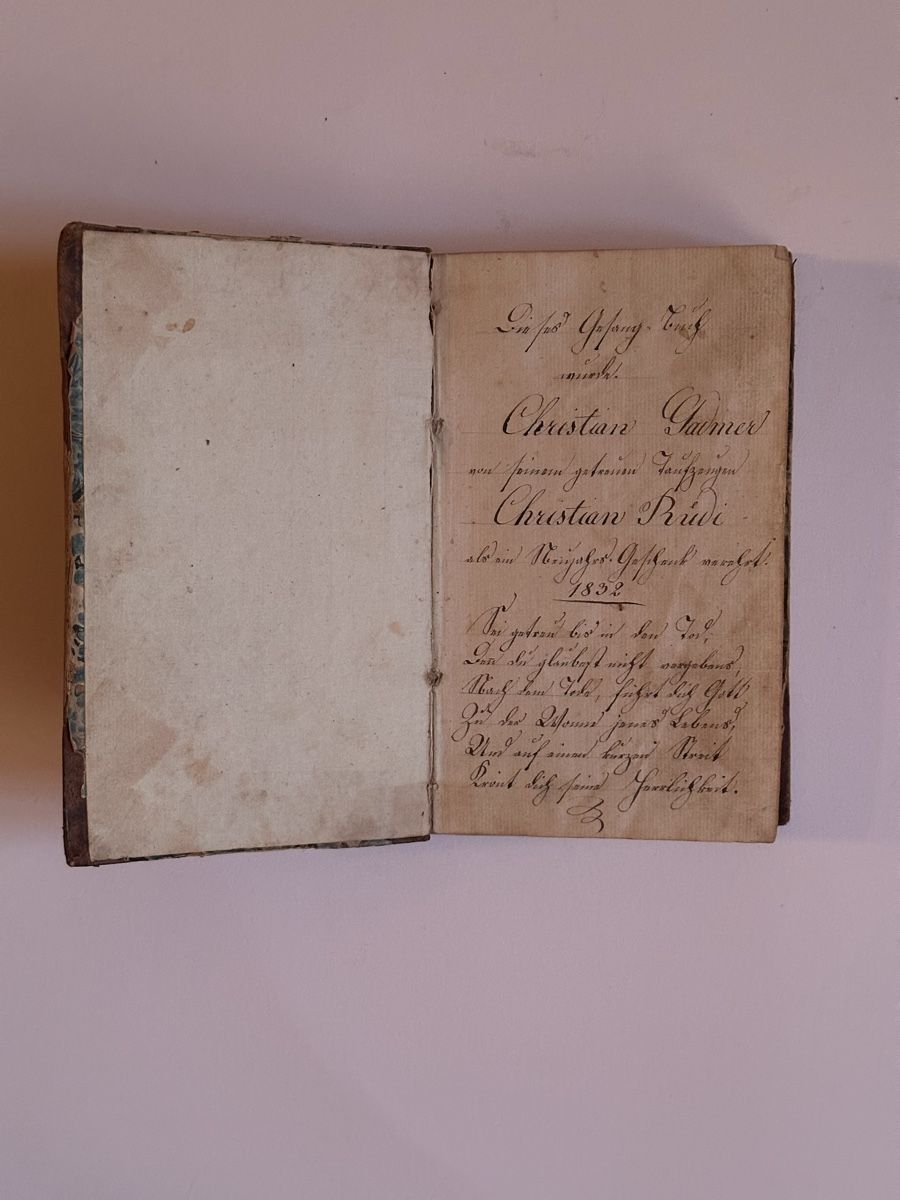 Dieses Gesang-Buch
wurde.
Christian Gadmer
von seinem getreuen Taufzeugen
Christian Rüdi
als ein Neujahrs-Geschenk verehrt.
1832
Sei getreu bis in den Tod,
Den du glaubest nicht vergebens,
Nach dem Tode, führt dich Gott
Zu der Wonne jenes Lebens,
Und auf einen kurzen Streit
Krönt dich seine Herrlichkeit.